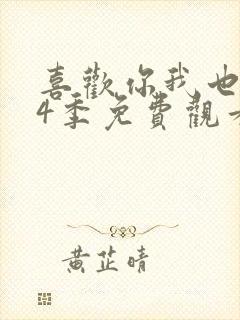 喜歡你我也
4季免費觀看
黃芷晴